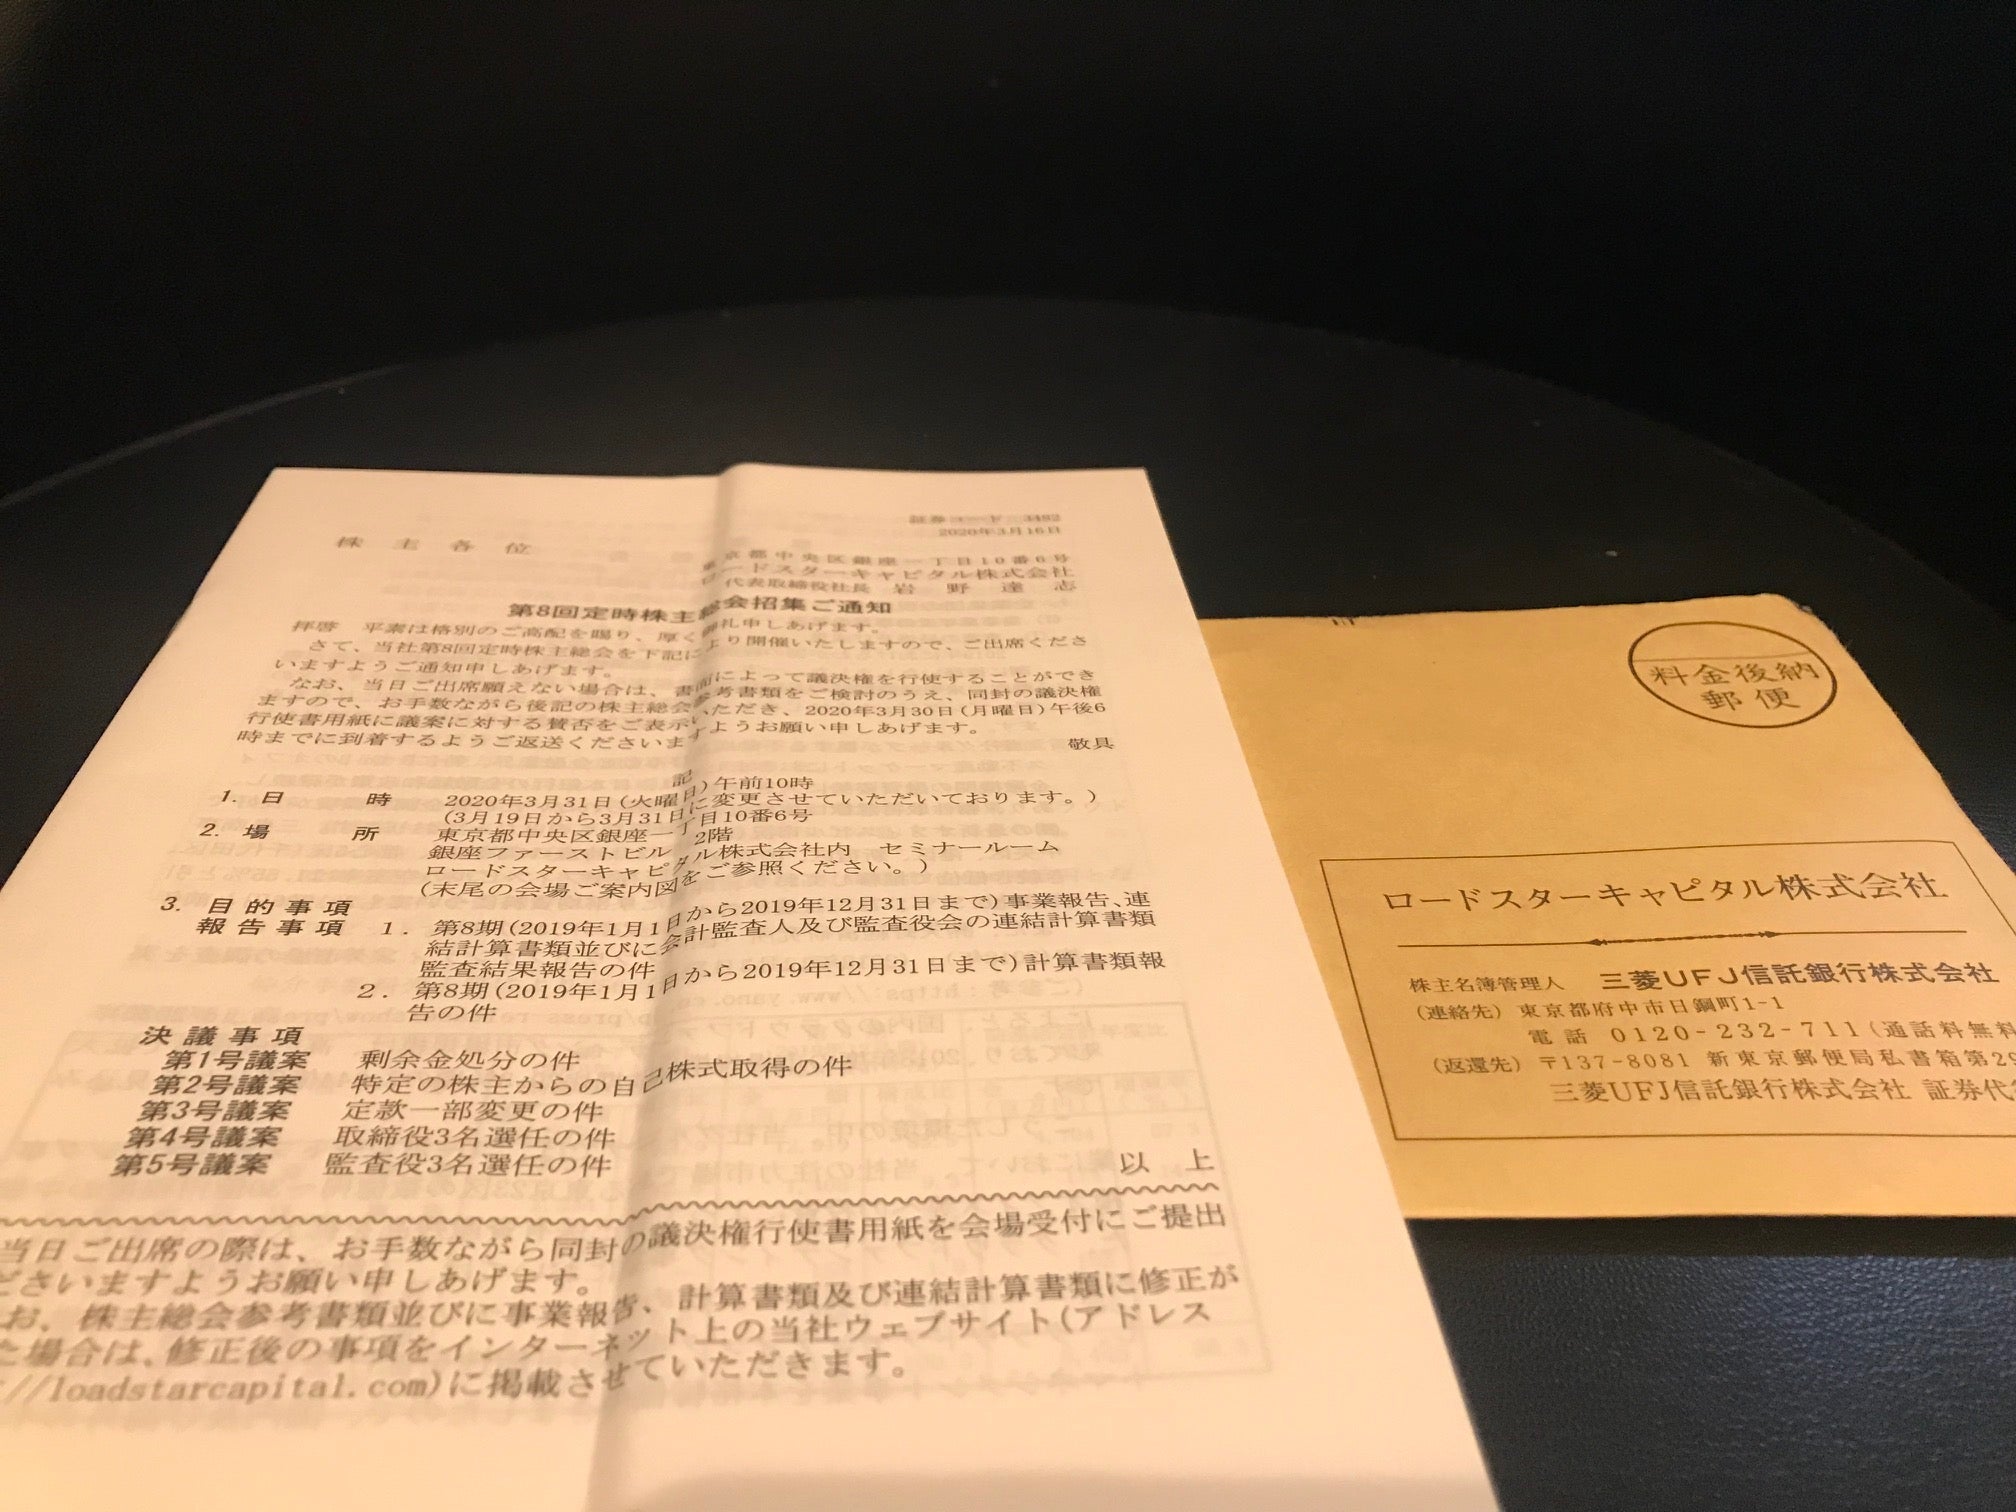 証券コード 3482
2020年3月16日
株主各位
東京都中央区銀座一丁目10番6号
ロードスターキャピタル株式会社
代表取締役社長 岩野達志
第8回定時株主総会招集ご通知
拝啓 平素は格別のご高配を賜り、厚く御礼申しあげます。
さて、当社第8回定時株主総会を下記により開催いたしますので、ご出席くださ
いますようご通知申しあげます。
なお、当日ご出席願えない場合は、書面によって議決権を行使することができ
ますので、お手数ながら後記の株主総会参考書類をご検討のうえ、同封の議決権
行使書用紙に議案に対する賛否をご表示いただき、2020年3月30日(月曜日)午後6
時までに到着するようご返送くださいますようお願い申しあげます。
敬具
記
1. 日時 2020年3月31日(火曜日)午前10時
(3月19日から3月31日に変更させていただいております。)
2. 場所 東京都中央区銀座一丁目10番6号
銀座ファーストビル 2階
ロードスターキャピタル株式会社内 セミナールーム
(末尾の会場ご案内図をご参照ください。)
3. 目的事項
報告事項 1. 第8期(2019年1月1日から2019年12月31日まで)事業報告、連
結計算書類並びに会計監査人及び監査役会の連結計算書類
監査結果報告の件
2. 第8期(2019年1月1日から2019年12月31日まで)計算書類報
告の件
決議事項
第1号議案 剰余金処分の件
第2号議案 特定の株主からの自己株式取得の件
第3号議案 定款一部変更の件
第4号議案 取締役3名選任の件
第5号議案 監査役3名選任の件
以上
当日ご出席の際は、お手数ながら同封の議決権行使書用紙を会場受付にご提出
ださいますようお願い申しあげます。
お、株主総会参考書類並びに事業報告、計算書類及び連結計算書類に修正が
た場合は、修正後の事項をインターネット上の当社ウェブサイト(アドレス
//loadstarcapital.com)に掲載させていただきます。
料金後納
郵便
ロードスターキャピタル株式会社
株主名簿管理人 三菱UFJ信託銀行株式会社
(連絡先) 東京都府中市日鋼町1-1
電話 0120-232-711(通話料無料
(返還先) 〒137-8081 新東京郵便局私書箱第29
三菱UFJ信託銀行株式会社 証券代